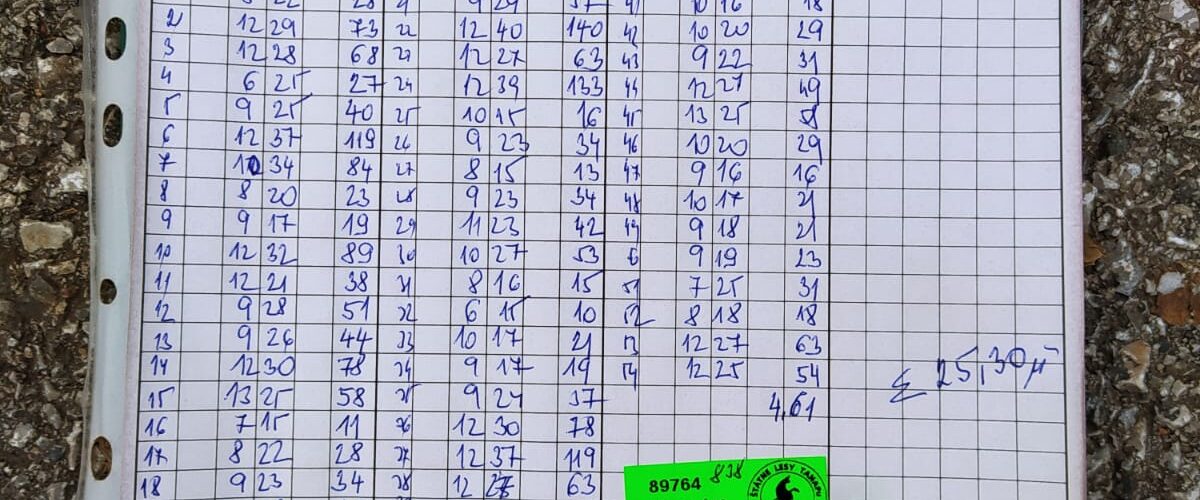 12 29 73 22 12 40 140 42 10 20 29
3 12 28 68 23 12 27 63 43 9 22 31
4 6 25 27 24 12 39 133 44 12 27 49
5 9 25 40 25 10 15 16 45 13 25 58
6 12 37 119 26 9 23 34 46 10 20 29
7 10 34 84 27 8 15 13 47 9 16 16
8 8 20 23 28 9 23 34 48 10 17 21
9 9 17 19 29 11 23 42 49 9 18 21
10 12 32 89 30 10 27 53 9 19 23
11 12 21 38 31 8 16 15 51 7 25 31
12 9 28 51 32 6 15 10 52 8 18 18
13 9 26 44 33 10 17 21 53 12 27 63
14 12 30 78 34 9 17 19 54 12 25 54
15 13 25 58 35 9 24 37 4,61
Σ 25,30
16 7 15 11 36 12 30 78
17 8 22 28 37 12 37 119
18 9 23 34 38 12 27 63
89764 838
ŠTÁTNE LESY TANAPU